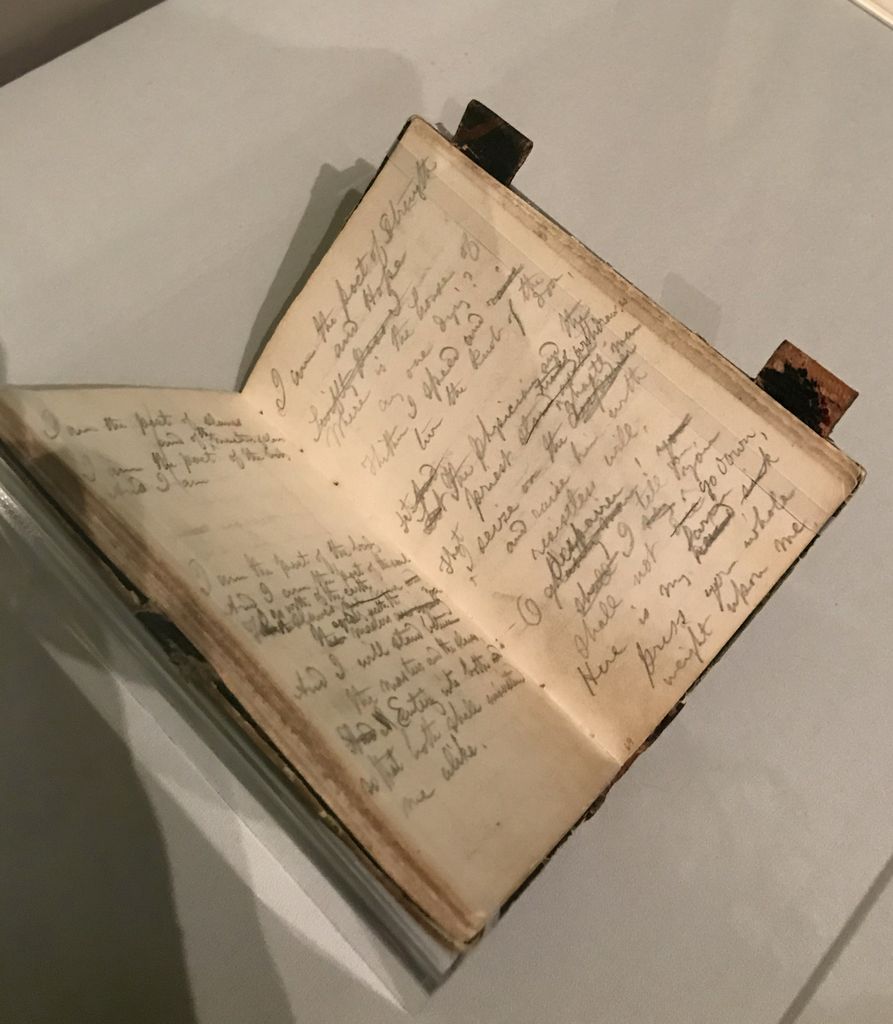 I am the poet of slaves
and of the masters of slaves
I am the poet of the body
And I am
I am the poet of the body
And I am the poet of the soul
I go with the slaves of the earth
equally with the
masters
And I will stand between
the masters and the slaves,
And I Entering into both
so that both shall understand
me alike.
I am the poet of Strength
and Hope
Swiftly pass I
Where is the house of
any one dying?
Thither I speed and raise
turn the knob of the door,
Let the physician and the
priest timidly withdraw,
That I seize on the ghastly man
and raise him with
resistless will;
O despairer! I tell you
shall not go down,
Here is my hand arm sink
Press your whole
weight upon me,